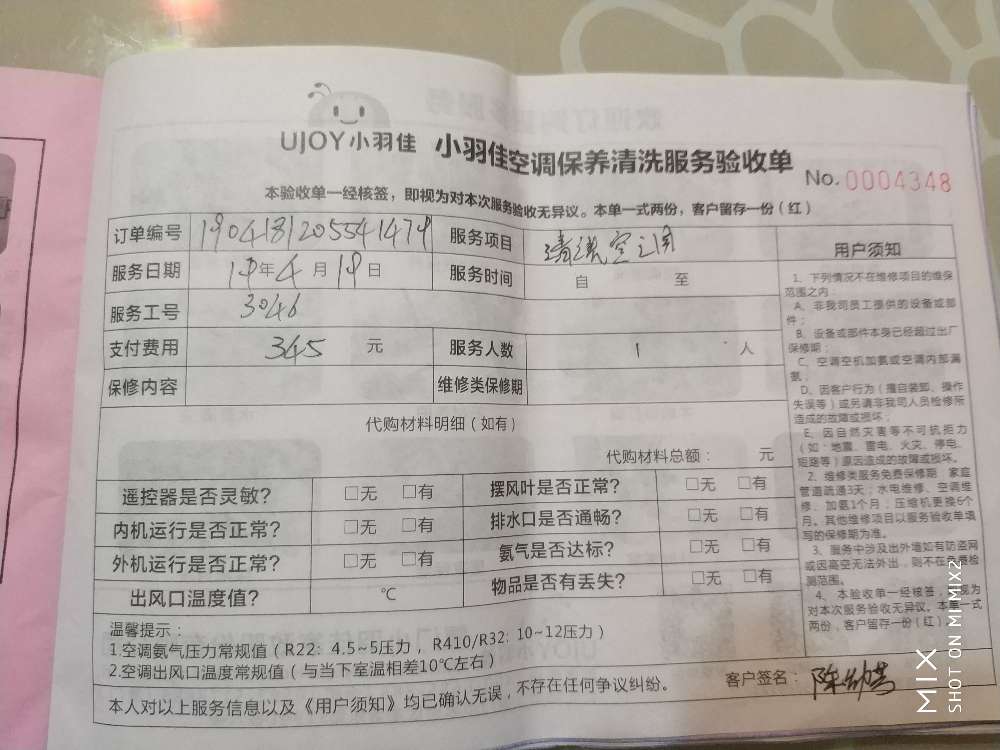 UJOY小羽佳 小羽佳空调保养清洗服务验收单
No. 0004348
本验收单一经核签，即视为对本次服务验收无异议。本单一式两份，客户留存一份（红）
订单编号 190418120554 1479 服务项目 清洗空调
服务日期 19年4月19日 服务时间 自 至
服务工号 3046
支付费用 345 元 服务人数 1 人
保修内容 维修类保修期
代购材料明细（如有）
代购材料总额： 元
遥控器是否灵敏? □无 □有 摆风叶是否正常? □无 □有
内机运行是否正常? □无 □有 排水口是否通畅? □无 □有
外机运行是否正常? □无 □有 氨气是否达标? □无 □有
出风口温度值? ℃ 物品是否有丢失? □无 □有
温馨提示：
1.空调氨气压力常规值（R22: 4.5~5压力，R410/R32: 10~12压力）
2.空调出风口温度常规值（与当下室温相差10℃左右）
本人对以上服务信息以及《用户须知》均已确认无误，不存在任何争议纠纷。
客户签名：
用户须知
1、下列情况不在维修项目的维保
范围之内：
A、非我司员工提供的设备或部
件；
B、设备或部件本身已经超过出厂
保修期；
C、空调空机加氨或空调内部漏
氨；
D、因客户行为（擅自装卸、操作
失误等）或另请非我司人员检修所
造成的故障或损坏；
E、因自然灾害等不可抗拒力
（如：地震、雷电、火灾、停电、
短路等）原因造成的故障或损坏。
2、维修类服务免费保修期：家庭
管道疏通3天；水电维修、空调维
修、加氨1个月；压缩机更换6个
月。其他维修项目以服务验收单填
写的保修期为准。
3、服务中涉及出外墙如有防盗网
或因高空无法外出，则不在免费检
测范围。
4、本验收单一经核签，视为
对本次服务验收无异议。本单一式
两份，客户留存一份（红）
MIX
SHOT ON MI MIX2